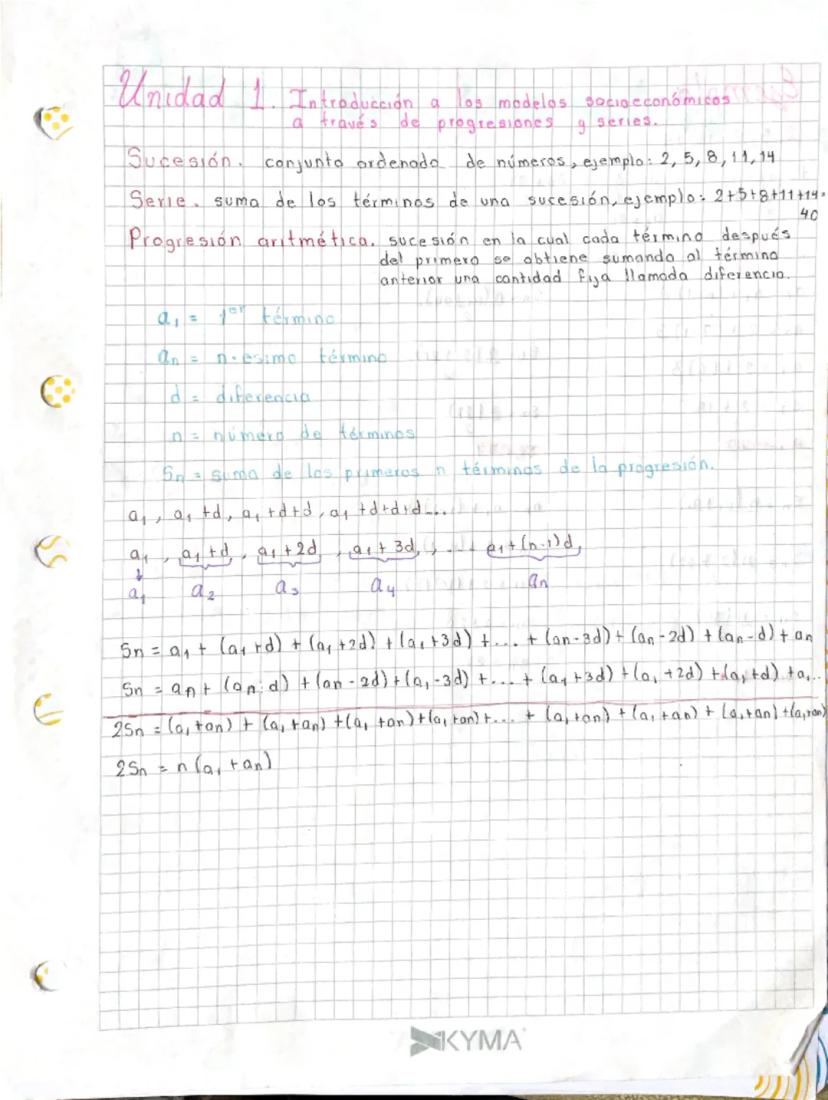 Unidad 1. Introducción a los modelos socioeconómicos
a través de progresiones y series.
Sucesión. conjunto ordenado de números, ejemplo: 2, 5, 8, 11, 14
Serie. suma de los términos de una sucesión, ejemplo: 2+5+8+11+14=
40
Progresión aritmética. sucesión en la cual cada término después
del primero se obtiene sumando al término
anterior una cantidad fija llamada diferencia.
a₁ = 1er término
an = n-ésimo término
d = diferencia
n = número de términos
Sn = suma de los primeros n términos de la progresión.
a₁, a₁+d, a₁+d+d, a₁+d+d+d...
a₁, a₁+d, a₁+2d, a₁+3d, ... a₁+(n-1)d,
↓
a₁ a₂ a₃ a₄ an
Sn = a₁ + (a₁+d) + (a₁+2d) + (a₁+3d) +... + (an-3d) + (an-2d) + (an-d) + an
Sn = an + (an-d) + (an-2d) + (a₁-3d) +... + (a₁+3d) + (a₁+2d) + (a₁+d) + a₁..
2Sn = (a₁+an) + (a₁+an) + (a₁+an) + (a₁+an) +... + (a₁+an) + (a₁+an) + (a₁+an) + (a₁+an)
2Sn = n(a₁+an)
KYMA